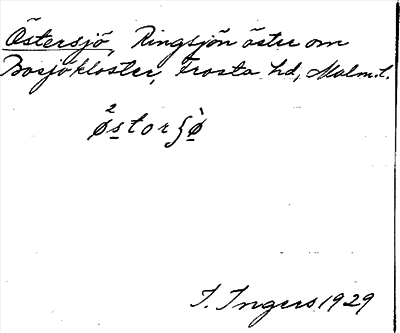 Östersjö, Ringsjön öster om
Bosjökloster, Frosta hd, Malm. l.
ø²storʃø̀
I. Ingers 1929